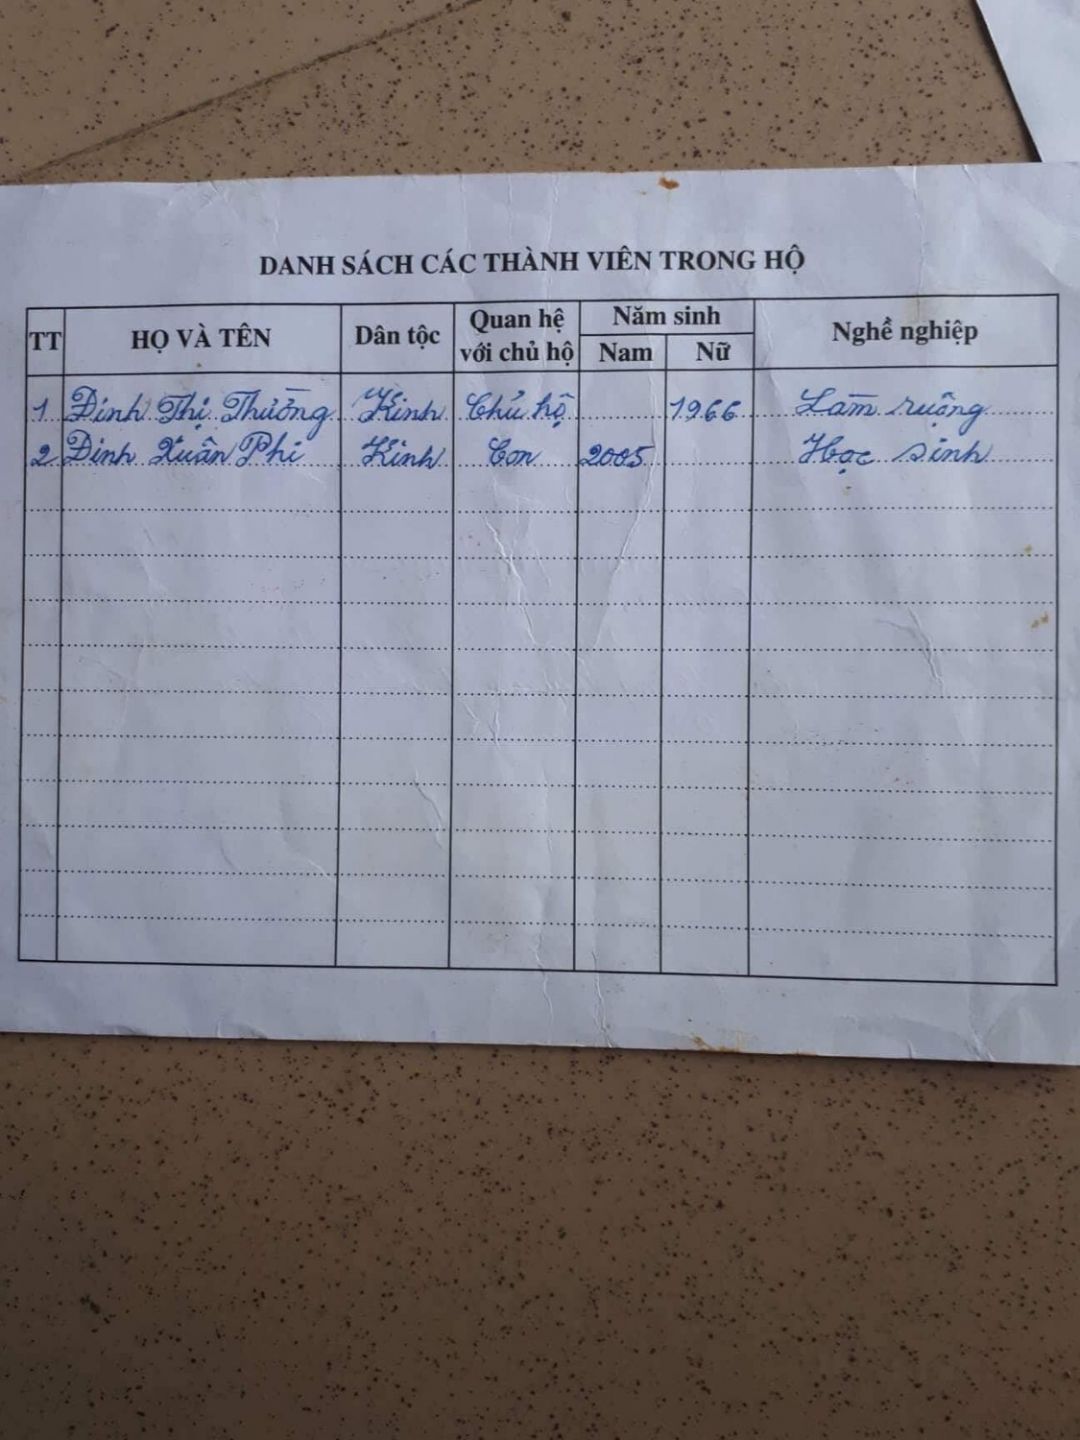 DANH SÁCH CÁC THÀNH VIÊN TRONG HỘ
TT HỌ VÀ TÊN Dân tộc Quan hệ với chủ hộ Năm sinh Nghề nghiệp
Nam Nữ
1 Đinh Thị Thưởng Kinh Chủ hộ 1966 Làm ruộng
2 Đinh Xuân Phi Kinh Con 2005 Học sinh